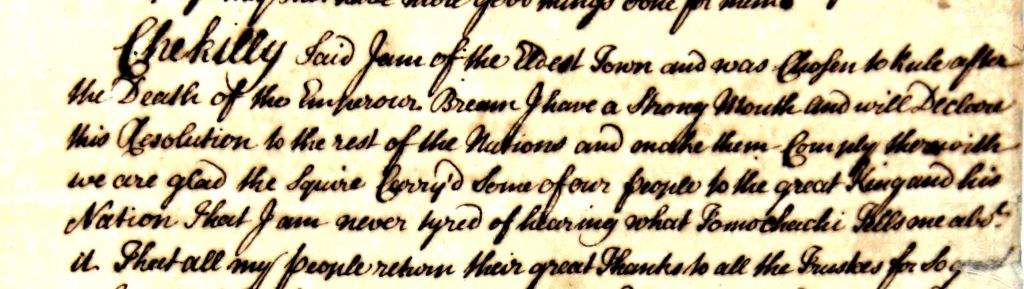 have more good things done for them.
Chekilly Said I am of the Eldest Town and was Chosen to Rule after
the Death of the Emperour Bream I have a Strong Mouth and will Declare
this Resolution to the rest of the Nations and make them Comply therewith
we are glad the Squire Carry'd Some of our people to the great King and his
Nation That I am never tyred of hearing what Tomochachi Tells me abt.
it That all my people return their great Thanks to all the Trustees for So g